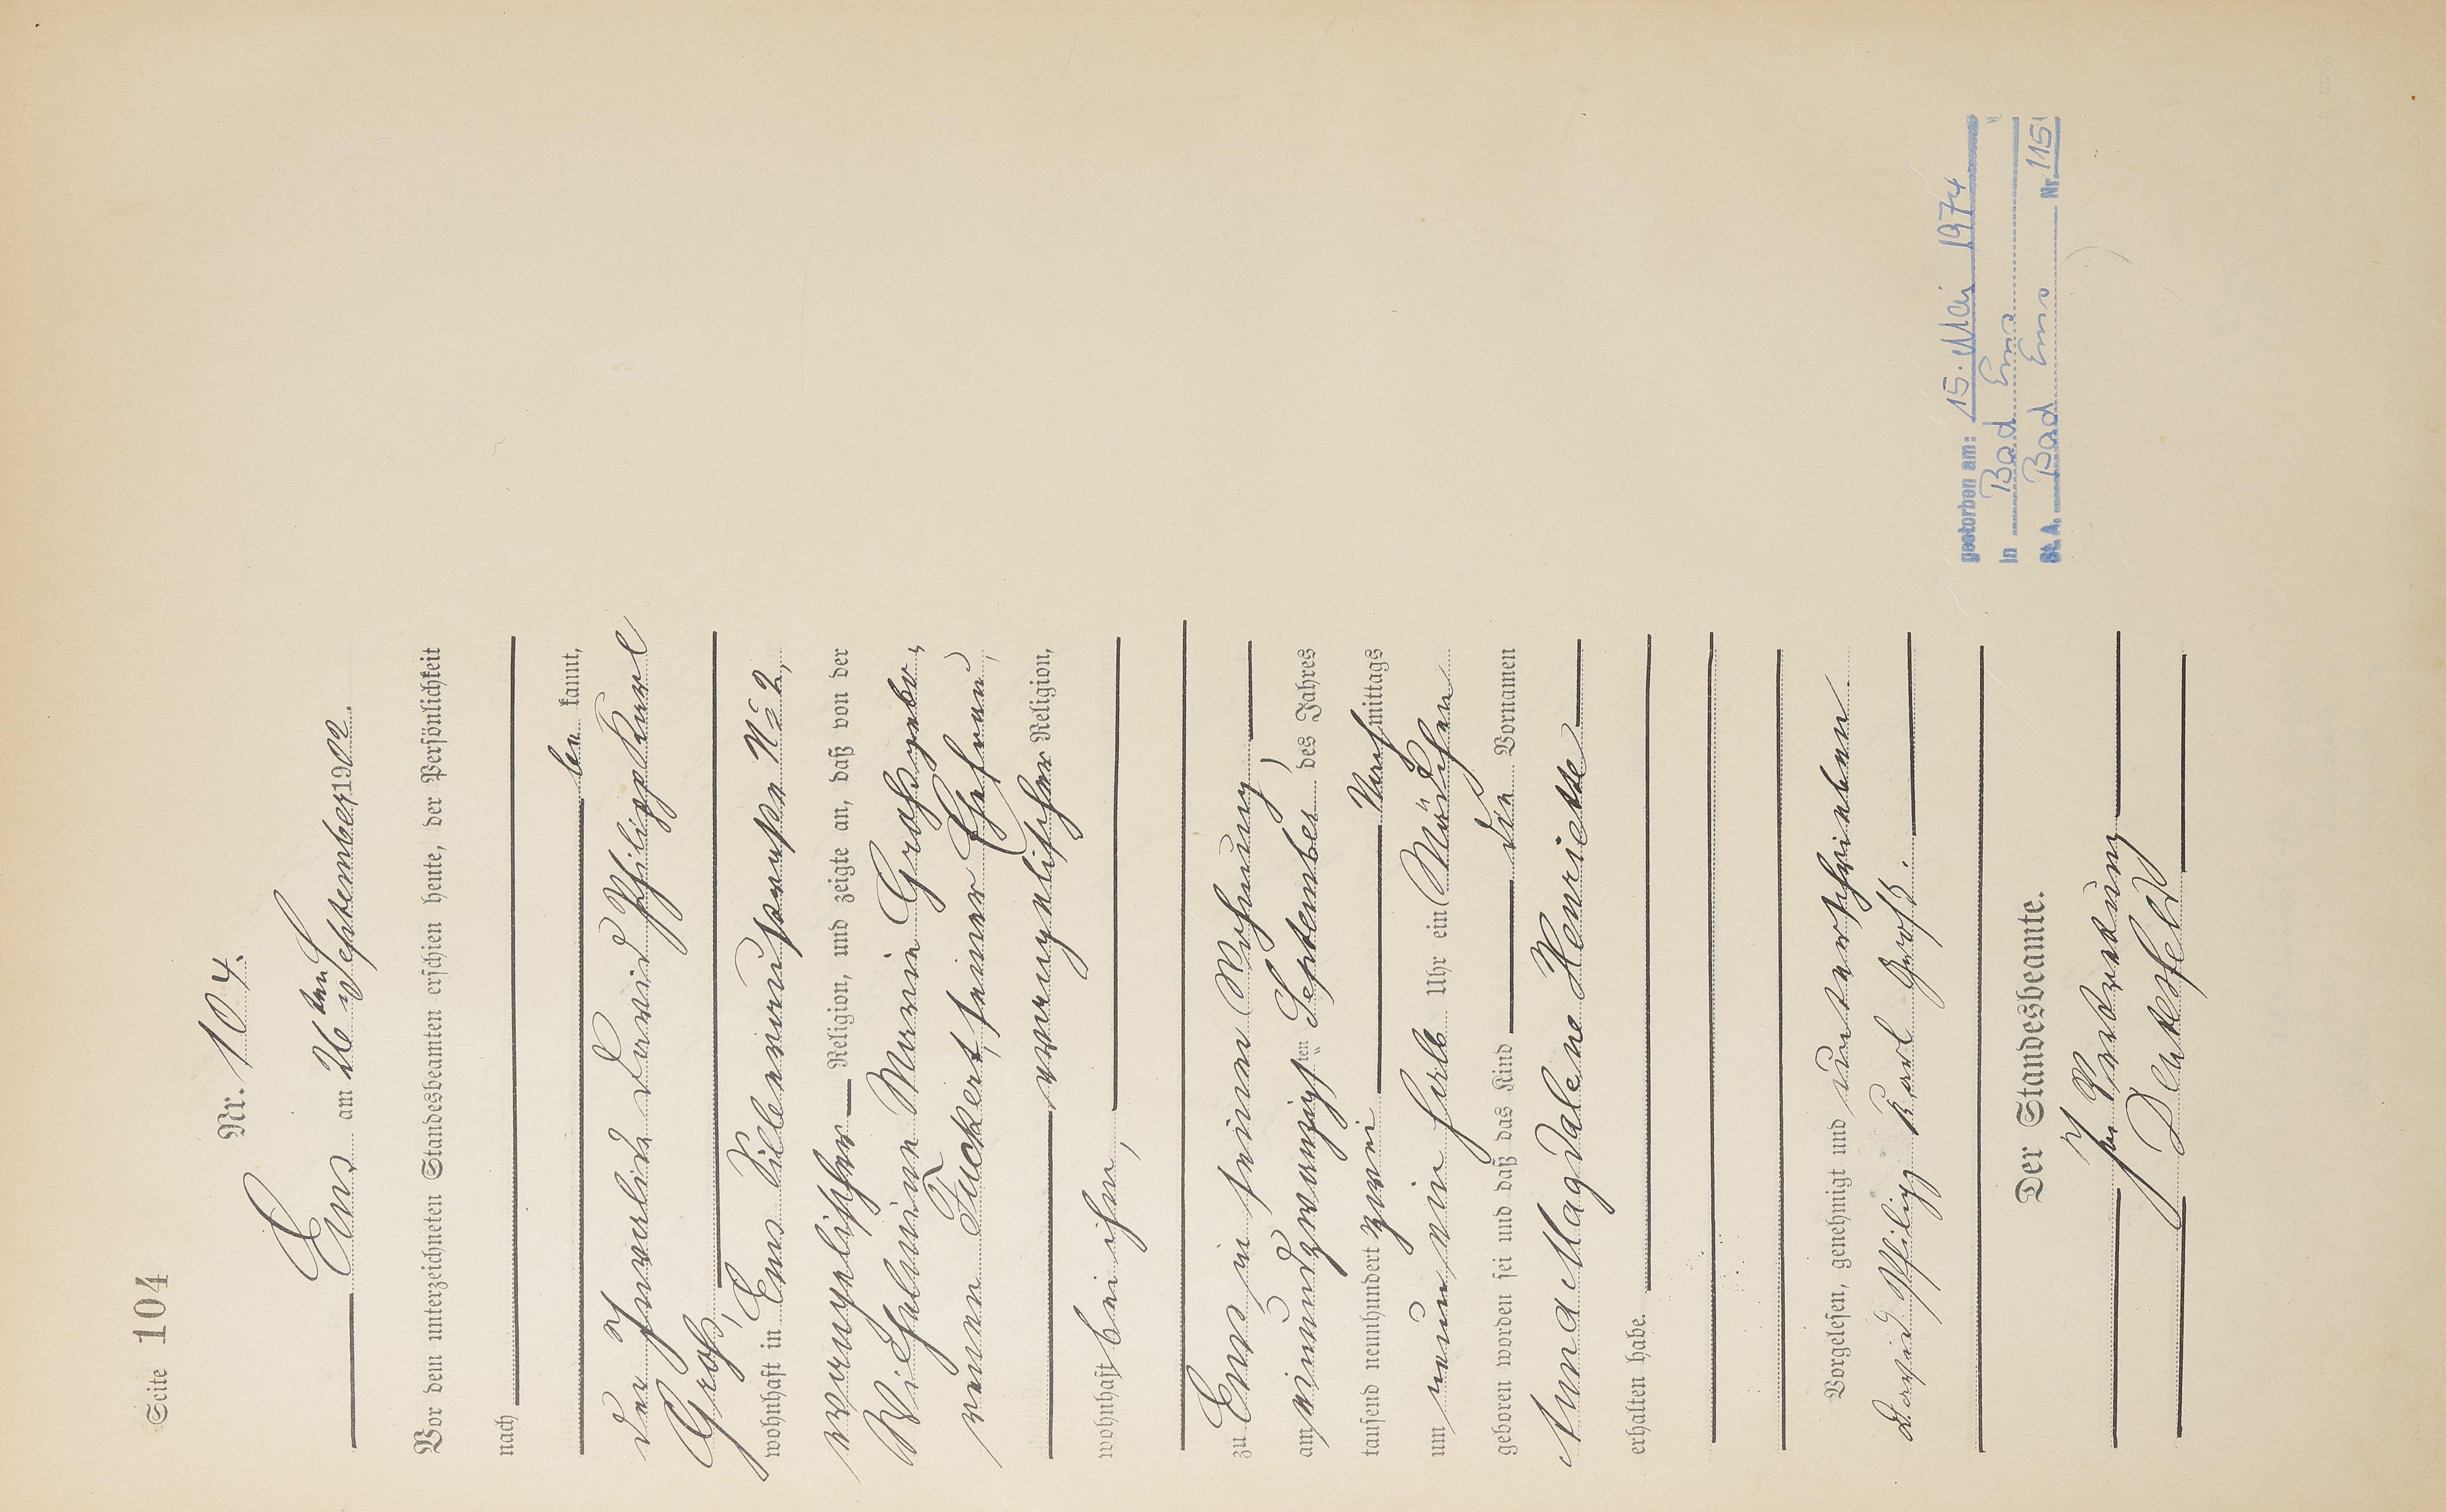 Seite 104
Nr. 104.
Ems am 26ten September 1902.
Vor dem unterzeichneten Standesbeamten erschien heute, der Persönlichkeit
nach
be kannt,
der Invalide David Philipp Karl
Groß,
wohnhaft in Ems Silberaustraße No 2,
evangelischer Religion, und zeigte an, daß von der
Wilhelmine Marie Groß gebo-
renen Fuckert, seiner Ehefrau,
evangelischer Religion,
wohnhaft bei ihm,
zu Ems in seiner Wohnung,
am einundzwanzigsten September des Jahres
tausend neunhundert zwei Nachmittags
um neun ein halb Uhr ein Mädchen
geboren worden sei und daß das Kind die Vornamen
Anna Magdalene Henriette
erhalten habe.
Vorgelesen, genehmigt und unterschrieben
David Philipp Karl Groß.
Der Standesbeamte.
In Vertretung
gestorben am: 15. Mai 1974
in Bad Ems
St. A. Bad Ems Nr. 115